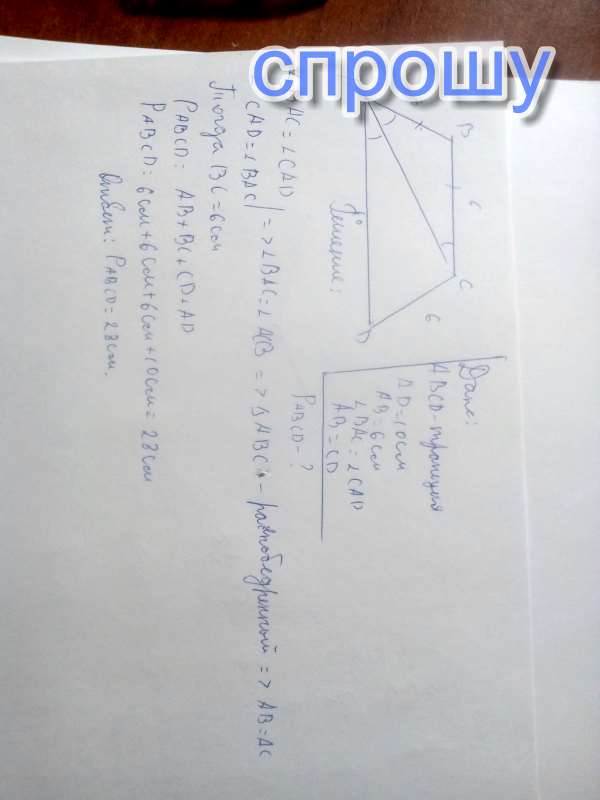 спрошу
B
6
C
6
D
Дано:
ABCD-трапеция
AD=10см
AB=6см
∠BAC=∠CAD
AB=CD
PABCD-?
Решение:
AC=∠CAD
CAD=∠BAC| =>∠BAC=∠ACB => ΔABC - равнобедренный => AB=AC
Тогда BC=6см
PABCD= AB+BC+CD+AD
PABCD= 6см+6см+6см+10см= 28см
Ответ: PABCD=28см.